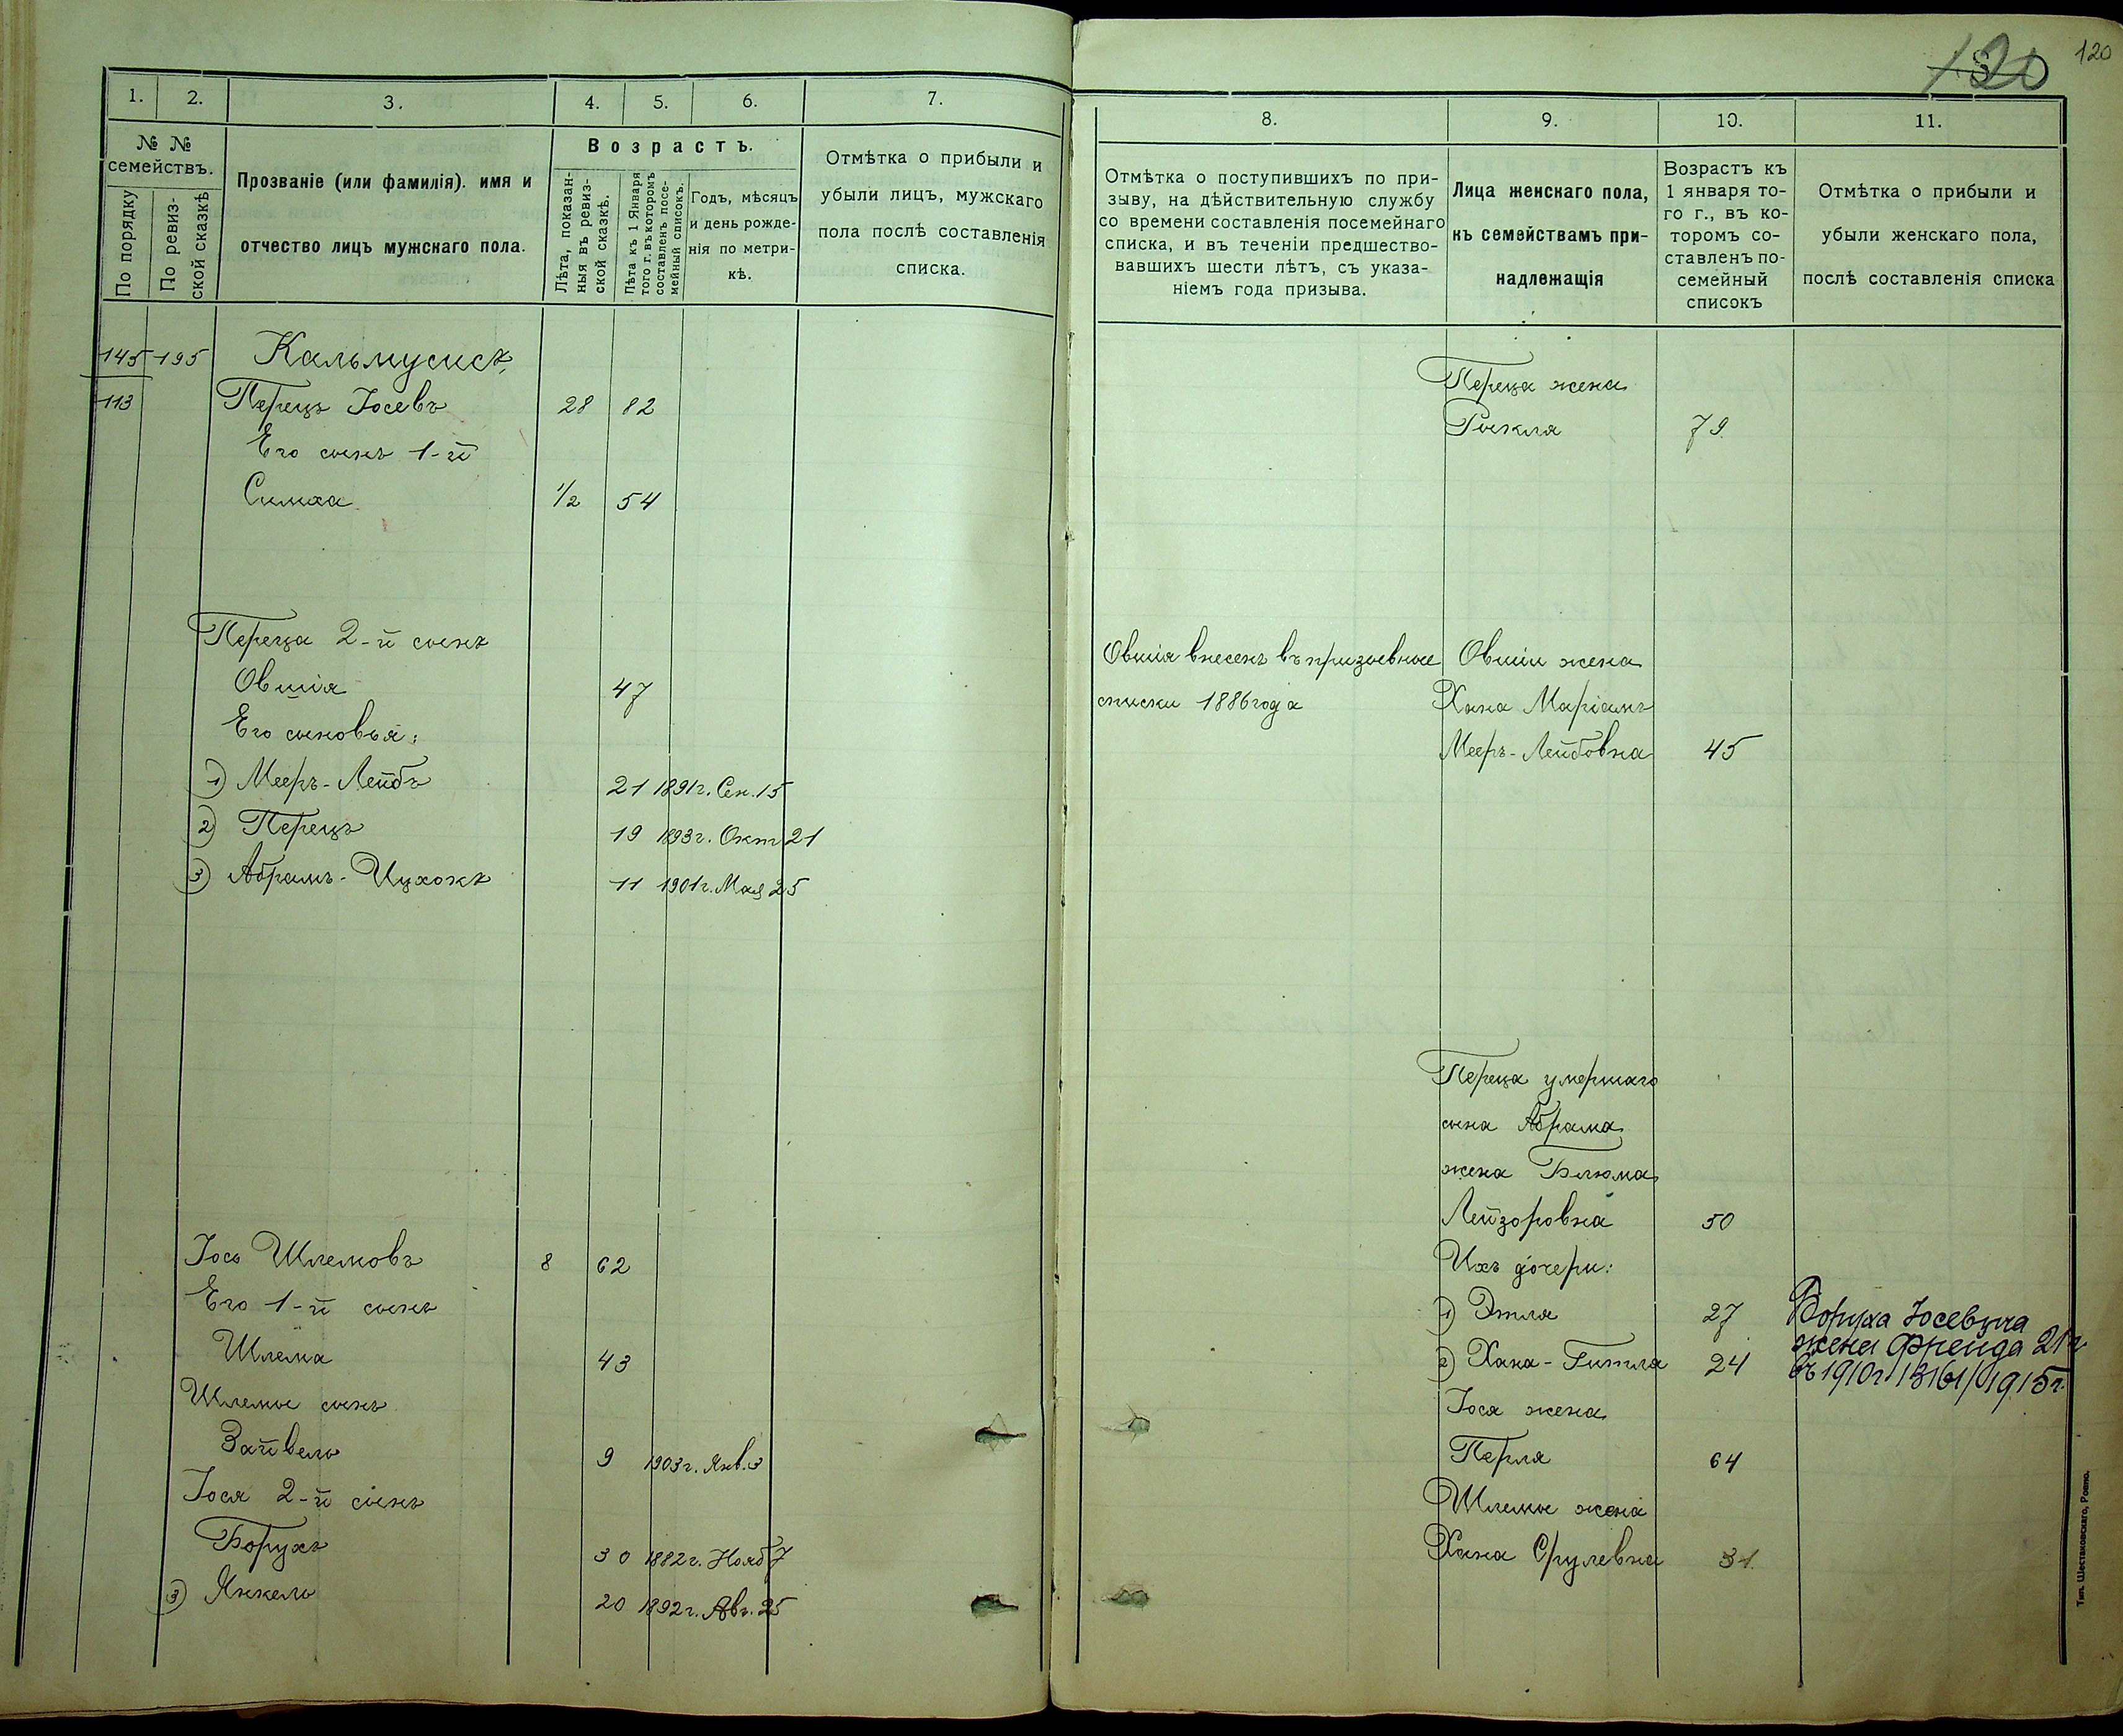 120
120
1.
2.
3.
4.
5.
6.
7.
№ №
семействъ.
По порядку
По ревиз-
ской сказкѣ
Прозваніе (или фамилія). имя и
отчество лицъ мужскаго пола.
Возрастъ.
Лѣта, показан-
ныя въ ревиз-
ской сказкѣ.
Лѣта къ 1 Января
того г. въ которомъ
составленъ посе-
мейный списокъ.
Годъ, мѣсяцъ
и день рожде-
нія по метри-
кѣ.
Отмѣтка о прибыли и
убыли лицъ, мужскаго
пола послѣ составленія
списка.
145 195 Кальмусисъ
113 Перецъ Іосевъ 28 82
Его сынъ 1-й
Симха 1/2 54
Переца 2-й сынъ
Овшія 47
Его сыновья:
1) Мееръ-Лейбъ 21 1891г. Сен. 15
2) Перецъ 19 1893г. Окт 21
3) Абрамъ-Ицхокъ 11 1901г. Мая 25
Іось Шлемовъ 8 62
Его 1-й сынъ
Шлема 43
Шлемы сынъ
Зайвель 9 1903г. Янв. 3
Іося 2-й сынъ
Борухъ 30 1882г. Нояб 7
3) Янкель 20 1892г. Авг. 25
8.
9.
10.
11.
Отмѣтка о поступившихъ по при-
зыву, на дѣйствительную службу
со времени составленія посемейнаго
списка, и въ теченіи предшество-
вавшихъ шести лѣтъ, съ указа-
ніемъ года призыва.
Лица женскаго пола,
къ семействамъ при-
надлежащія
Возрастъ къ
1 января то-
го г., въ ко-
торомъ со-
ставленъ по-
семейный
списокъ
Отмѣтка о прибыли и
убыли женскаго пола,
послѣ составленія списка
Переца жена
Рыкля 79.
Овшія внесенъ въ призывные
списки 1886 года
Овшіи жена
Хана Маріамъ
Мееръ-Лейбовна 45
Переца умершаго
сына Абрама
жена Блюма
Лейзоровна 50
Ихъ дочери:
1) Этля 27
2) Хана-Гитля 24
Боруха Іосевича
жена Фрейда 21 г
въ 1910г
1915г.
Іося жена
Перля 64
Шлемы жена
Хана Срулевна 31.
Тип. Шестаковскаго, Ровно.